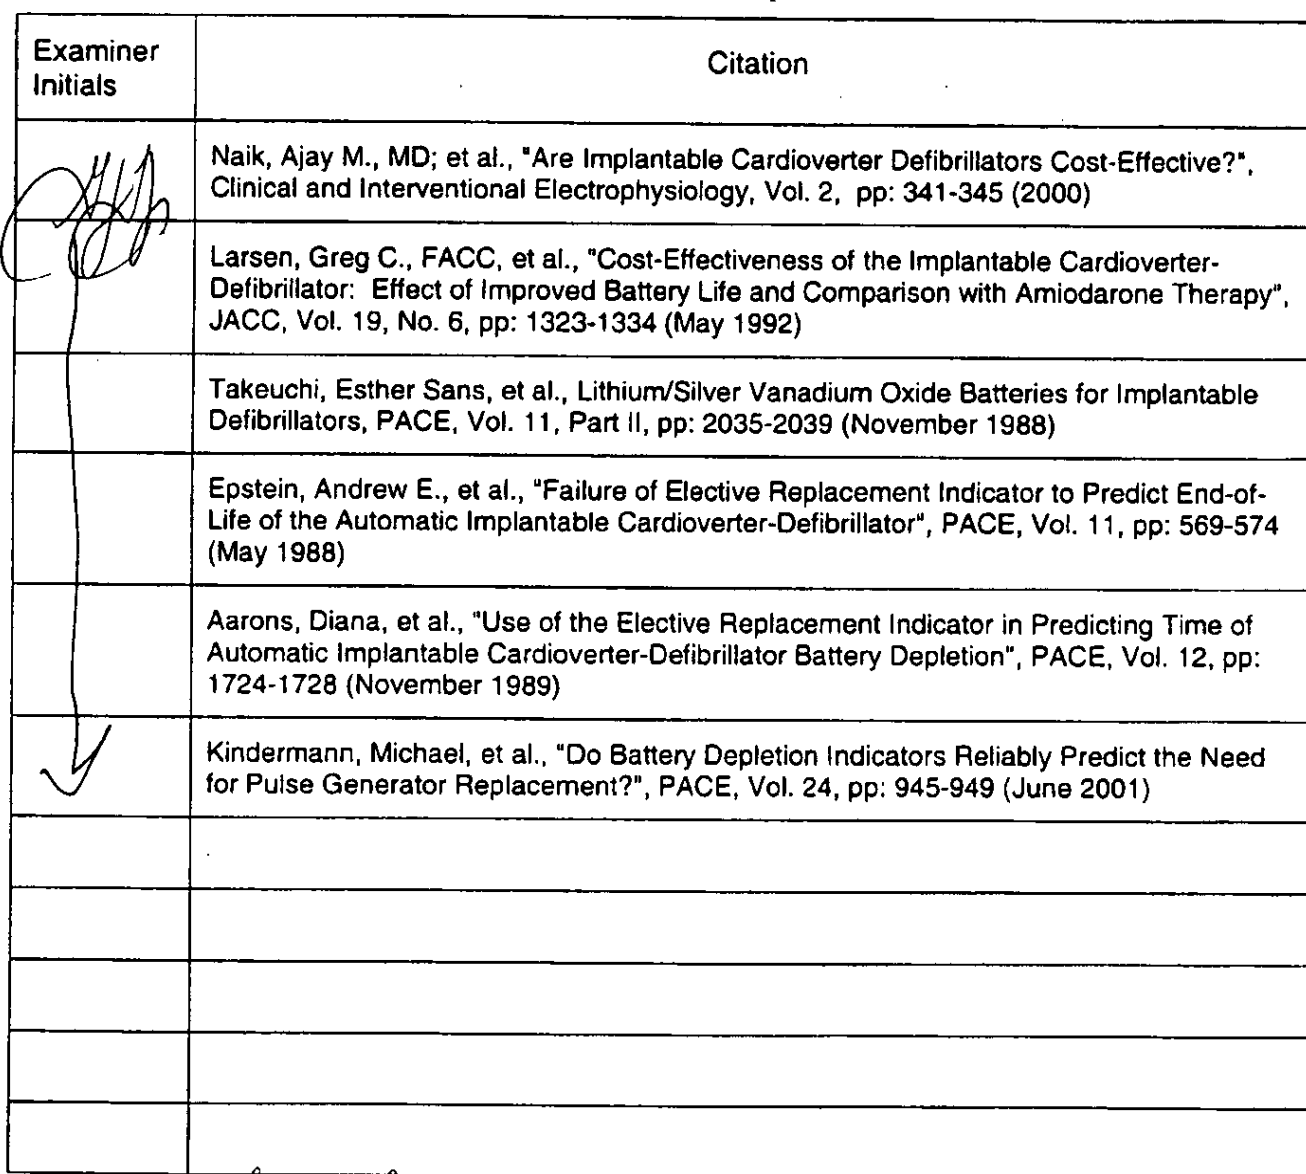 Examiner
Initials
Citation
Naik, Ajay M., MD; et al., "Are Implantable Cardioverter Defibrillators Cost-Effective?",
Clinical and Interventional Electrophysiology, Vol. 2, pp: 341-345 (2000)
Larsen, Greg C., FACC, et al., "Cost-Effectiveness of the Implantable Cardioverter-
Defibrillator: Effect of Improved Battery Life and Comparison with Amiodarone Therapy",
JACC, Vol. 19, No. 6, pp: 1323-1334 (May 1992)
Takeuchi, Esther Sans, et al., Lithium/Silver Vanadium Oxide Batteries for Implantable
Defibrillators, PACE, Vol. 11, Part II, pp: 2035-2039 (November 1988)
Epstein, Andrew E., et al., "Failure of Elective Replacement Indicator to Predict End-of-
Life of the Automatic Implantable Cardioverter-Defibrillator", PACE, Vol. 11, pp: 569-574
(May 1988)
Aarons, Diana, et al., "Use of the Elective Replacement Indicator in Predicting Time of
Automatic Implantable Cardioverter-Defibrillator Battery Depletion", PACE, Vol. 12, pp:
1724-1728 (November 1989)
Kindermann, Michael, et al., "Do Battery Depletion Indicators Reliably Predict the Need
for Pulse Generator Replacement?", PACE, Vol. 24, pp: 945-949 (June 2001)